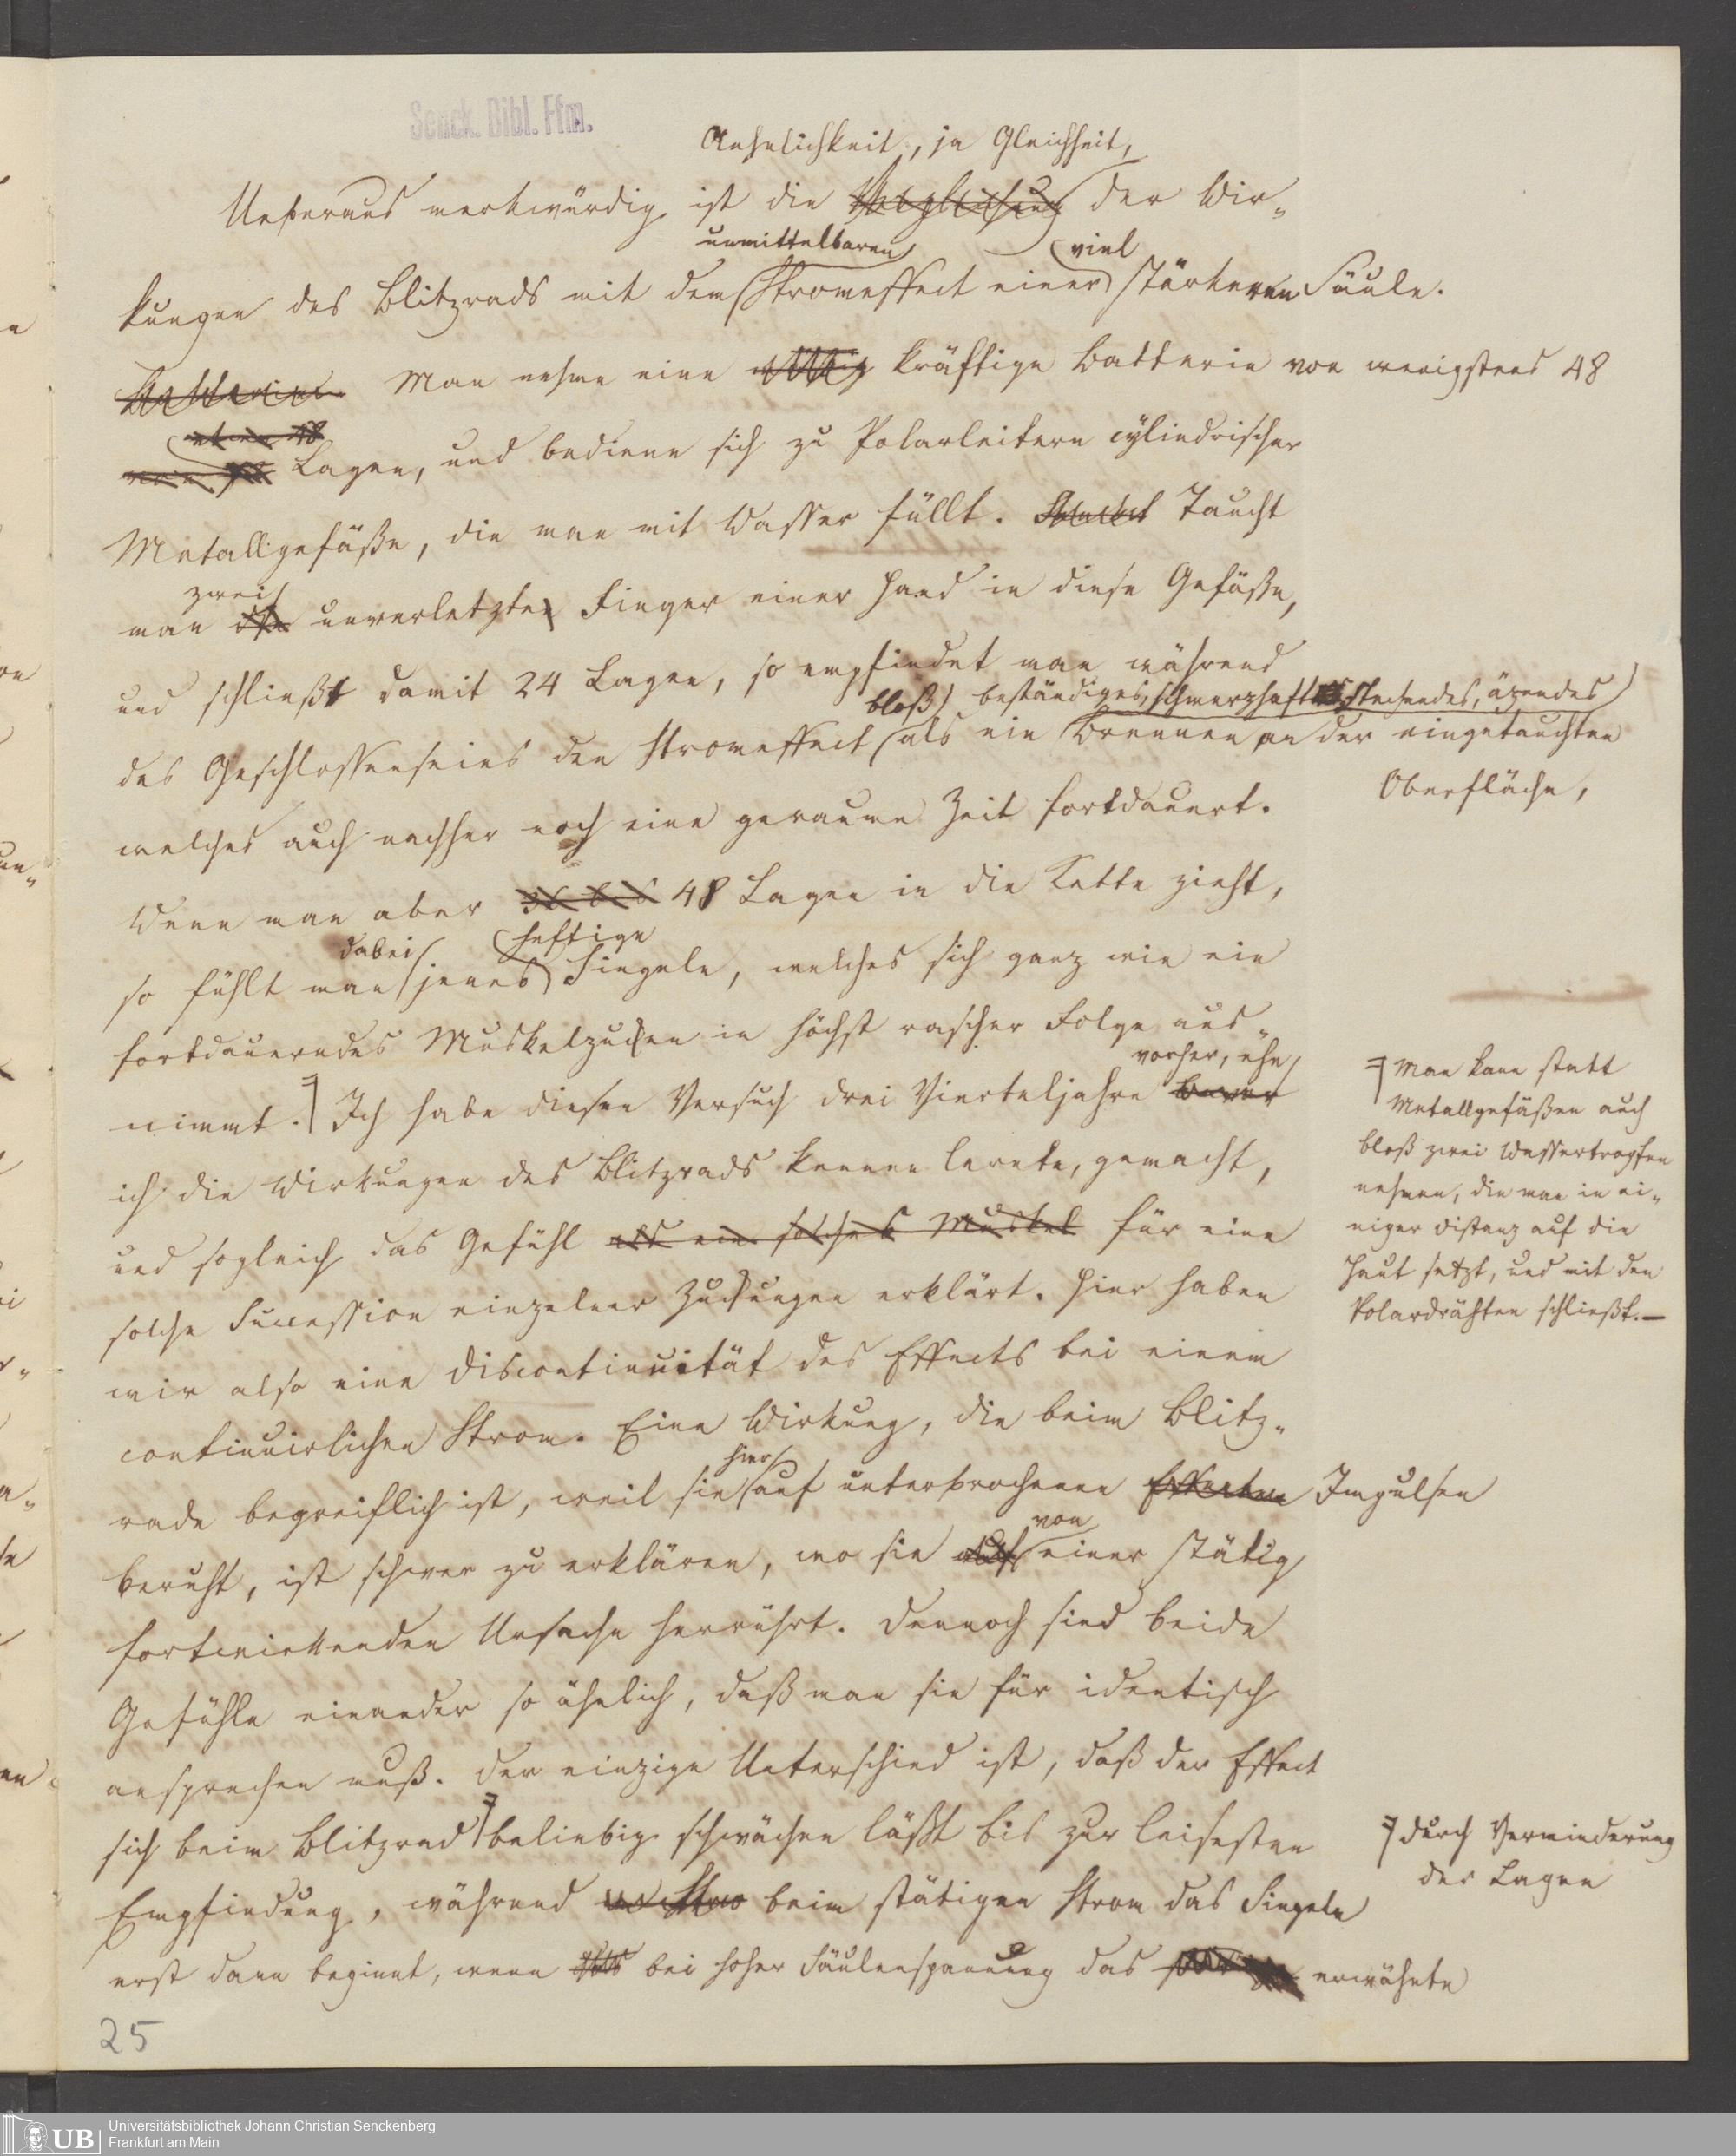 Senck. Bibl. Ffm.
Aehnlichkeit, ja Gleichheit,
Ueberaus merkwürdig ist die Vergleichung der Wir-
unmittelbaren viel
kungen des Blitzrads mit dem Stromeffect einer stärkeren Säule.
Batterien. Man nehme eine kräftige Batterie von wenigstens 48
etwa 48
von Lagen, und bediene sich zu Polarleitern cylindrischer
Metallgefäße, die man mit Wasser füllt. Taucht
zwei
man unverletzte Finger einer Hand in diese Gefäße,
und schließt damit 24 Lagen, so empfindet man während
bloß beständiges, schmerzhaftes stechendes, äzendes
des Geschlossenseins den Stromeffect als ein Brennen an der eingetauchten
Oberfläche,
welches auch nachher noch eine geraume Zeit fortdauert.
Wenn man aber 48 Lagen in die Kette zieht,
dabei heftige
so fühlt man jenes Singeln, welches sich ganz wie ein
fortdauerndes Muskelzucken in höchst rascher Folge aus-
vorher, ehe
nimmt. Ich habe diesen Versuch drei Vierteljahre bevor
ich die Wirkungen des Blitzrads kennen lernte, gemacht,
und sogleich das Gefühl als ein solches Muskel für eine
solche Succession einzelner Zuckungen erklärt. Hier haben
wir also eine Discontinuität des Effects bei einem
continuirlichen Strom. Eine Wirkung, die beim Blitz-
hier
rade begreiflich ist, weil sie auf unterbrochenen Effecten Impulsen
von
beruht, ist schwer zu erklären, wo sie auf einer stätig
fortwirkenden Ursache herrührt. Dennoch sind beide
Gefühle einander so ähnlich, daß man sie für identisch
ansprechen muß. Der einzige Unterschied ist, daß der Effect
sich beim Blitzrad beliebig schwächen läßt bis zur leisesten
Empfindung, während beim stätigen Strom das Singeln
erst dann beginnt, wenn bei hoher Säulenspannung das erwähnte
Man kann statt
Metallgefäßen auch
bloß zwei Wassertropfen
nehmen, die man in ei-
niger Distanz auf die
Haut setzt, und mit den
Polardrähten schließt.—
durch Verminderung
der Lagen
25
UB
Universitätsbibliothek Johann Christian Senckenberg
Frankfurt am Main